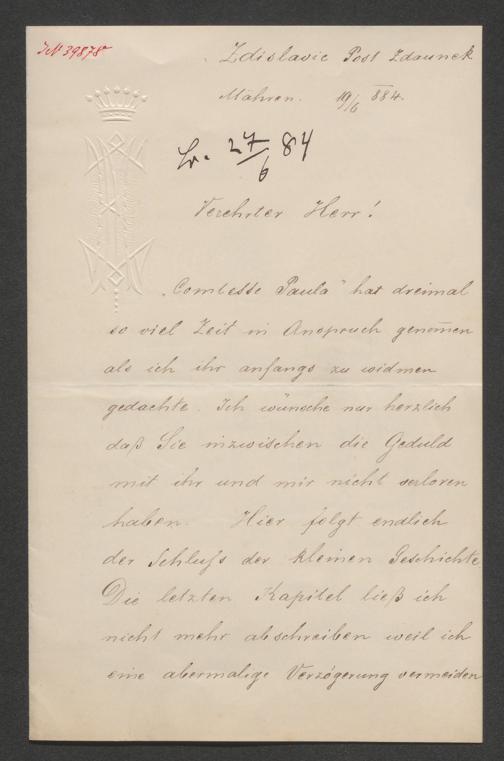 IN 39878
Zdislavic Post Zdaunek
Mähren. 19/6 884.
27/6 84
Verehrter Herr!
„Comtesse Paula" hat dreimal
so viel Zeit in Anspruch genom̄en
als ich ihr anfangs zu widmen
gedachte. Ich wünsche nur herzlich
daß Sie inzwischen die Geduld
mit ihr und mir nicht verloren
haben. Hier folgt endlich
der Schluß der kleinen Geschichte.
Die letzten Kapitel ließ ich
nicht mehr abschreiben weil ich
eine abermalige Verzögerung vermeiden